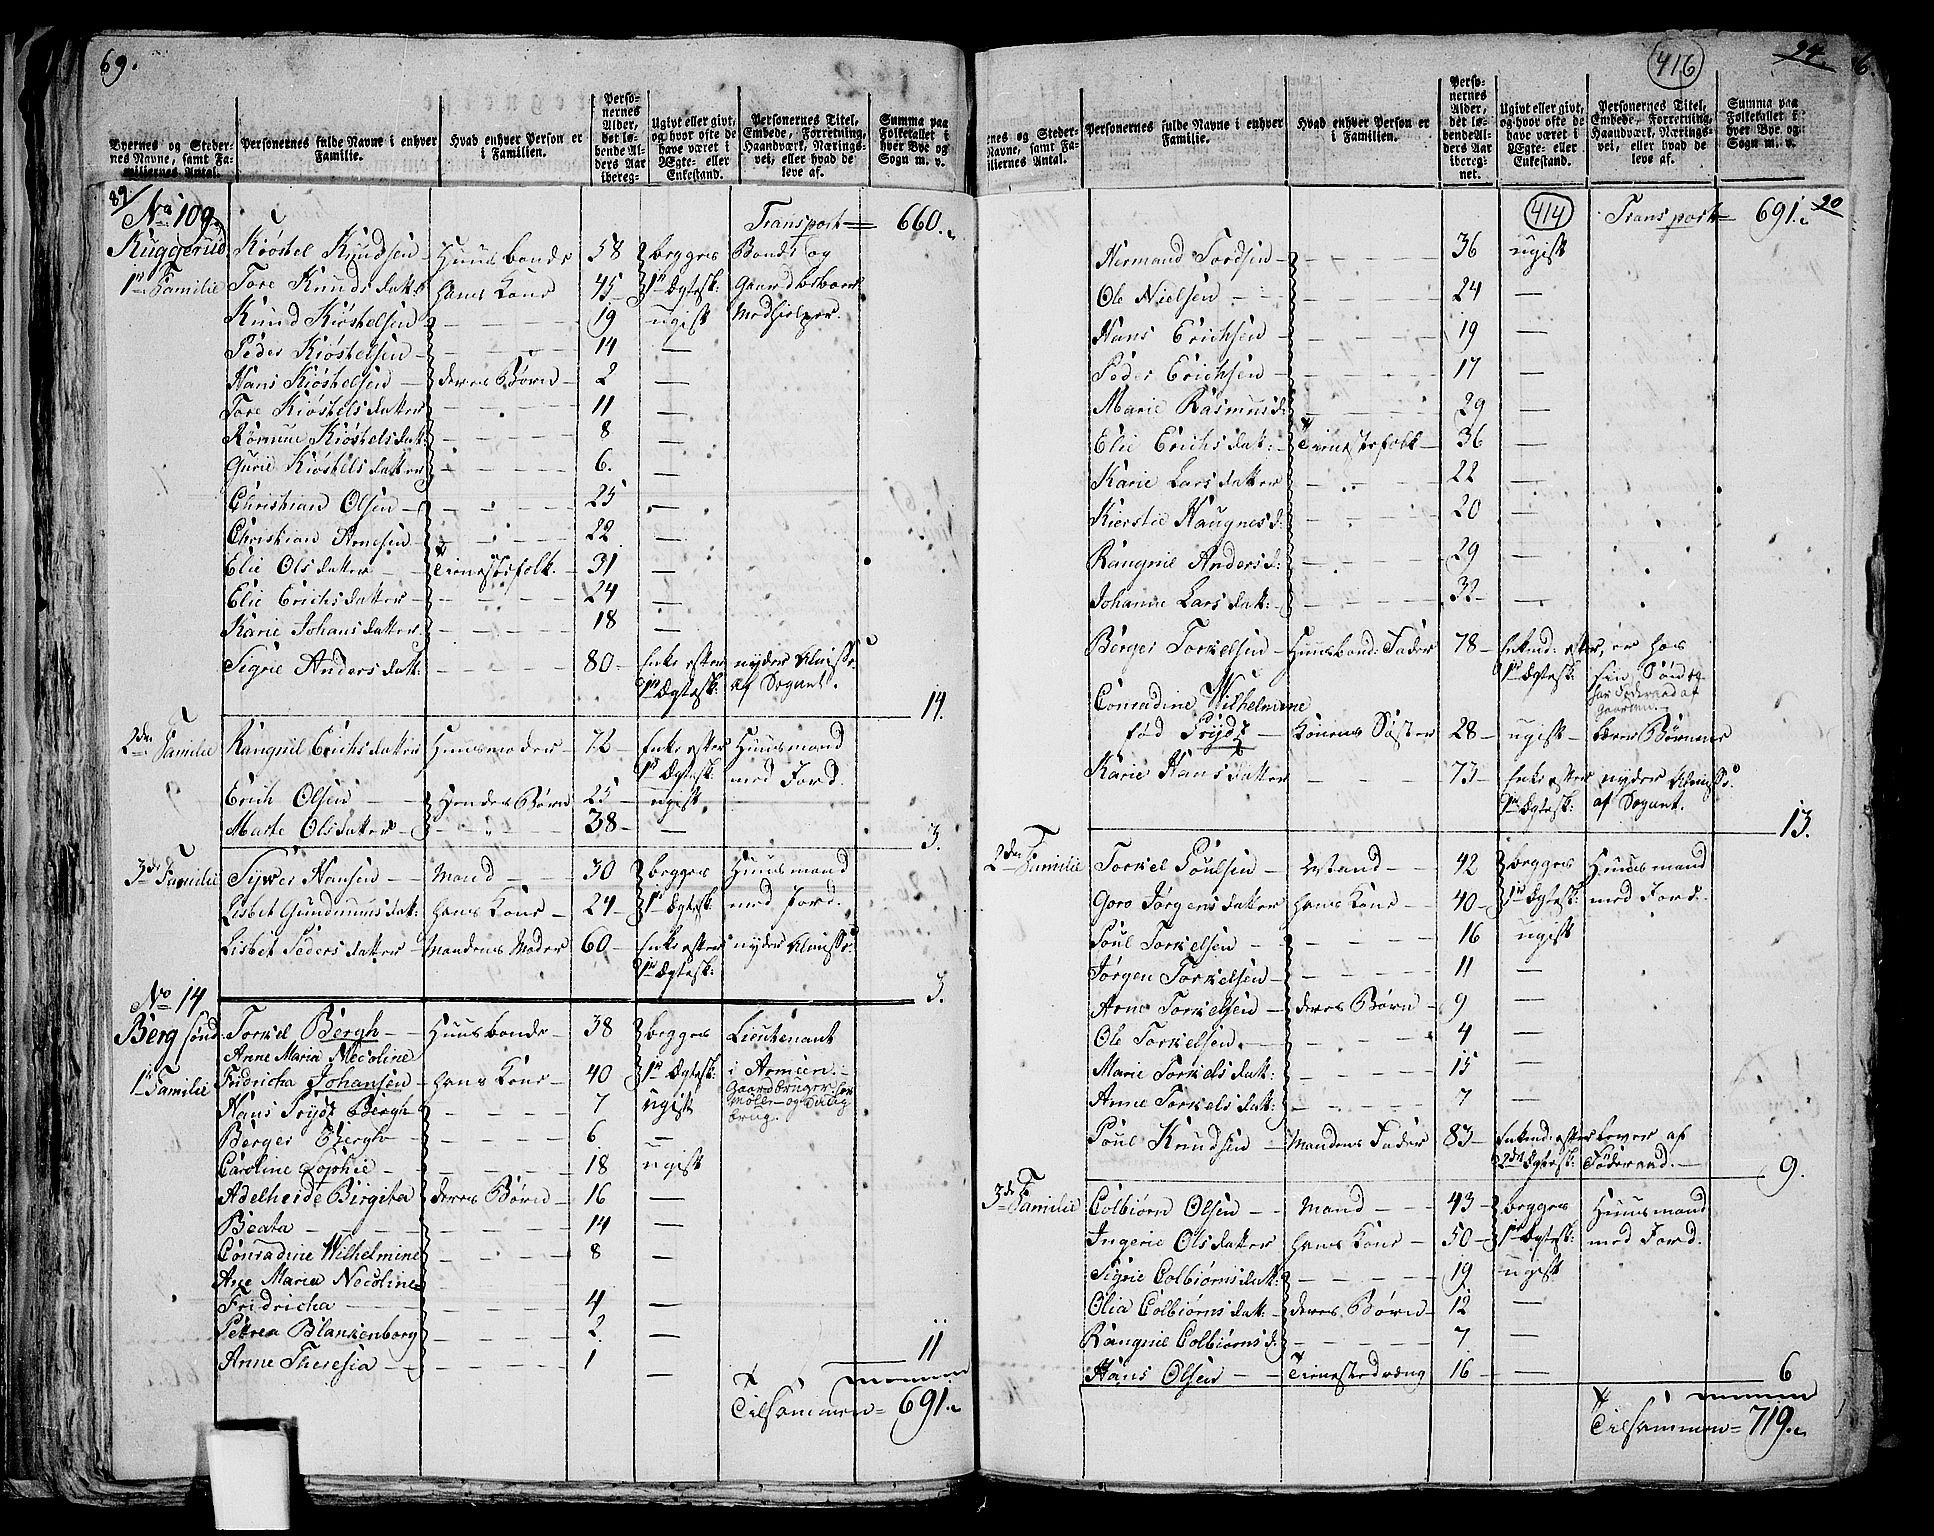 69.
Byernes og Steder-
nes Navne, samt Fa-
miliernes Antal.
Personernes fulde Navne i enhver
Familie.
Hvad enhver Person er
i Familien.
Perso-
nernes
Alder,
det lø-
bende Al-
ders Aar
ibereg-
Ugivt eller givt,
og hvor ofte de
have været i
Ægte- eller
Enkestand.
Personernes Titel,
Embede, Forretning,
Haandværk, Nærings-
vei, eller hvad de
leve af.
Summa paa
Folketallet i
hver Bye og
Sogn m. v.
89.
No 109. Transport = 660.
Ruggerud Kiøstel Knudsen - Huusbonde 58 begges Bonde og
1te Familie Tore Knudsdatt: hans Kone 45 1te Ægtesk: Gaardbeboer
Knud Kiøstelsen - - - - 19 ugift Medhielper.
Peder Kiøstelsen - - - - 14 —
Hans Kiøstelsen - deres Børn - 2 —
Tore Kiøstelsdatter - - - - 11 —
Rønnue Kiøstelsdatt: - - - - 8 —
Gurie Kiøstelsdatter - - - - 6. —
Christian Olsen - - - - 25 -
Christian Arnesen - - - - 22 —
Elie Olsdatter - Tienestefolk. - 31 —
Elie Erichsdatter - - - - 24 —
Karie Johansdatter - - - - 18 —
Sigrie Andersdatt: - - - - 80 - Enke efter nyder Almisse
1te Ægtesk: af Sognet. 14.
2den Familie Rangnil Erichsdatter Huusmoder - 72 - Enke efter Huusmand
1te Ægtesk: med Jord.
Erich Olsen - - Hendes Børn 25 - ugift.
Marte Olsdatter - - - - 38 - — 3.
3de Familie Syver Hansen - Mand - 30 begges Huusmand
Lisbet Gundmunsdatt: hans Kone - 24 - 1te Ægtesk: med Jord.
Lisbet Pedersdatter - Mandens Moder 60 - Enke efter nyder Almisse:
1te Ægtesk: 3.
No 14
Berg sønd. Torkel Bergh - - Huusbonde - 38 begges Lieutenant
Anne Maria Nicoline
1te Familie Fridricha Johansen - hans Kone - 40 1te Ægtesk: i Armeen. -
Gaardbruger har
Hans Prydz Bergh - - - - 7 ugift Mølle- og Saug
brug.
Berger Bergh - - - - - 6 —
Caroline Sophie - - - - - 18 ugift
Adelheide Birgita deres Børn - 16 —
Beata - - - - - - - 14 —
Conradine Wilhelmine - - - - 8 —
Ane Maria Nicoline
Fridricha - - - - - 4 —
Petrea Blankenborg - - - - 2. —
Anne Theresia - - - - - 1 — 11
Tilsammen = 691.
416
24. 6.
nes og Steder-
Navne, samt Fa-
miliernes Antal.
Personernes fulde Navne i enhver
Familie.
Hvad enhver Person er
i Familien.
Perso-
nernes
Alder,
det lø-
bende Al-
ders Aar
ibereg-
net.
Ugivt eller givt,
og hvor ofte de
have været i
Ægte- eller
Enkestand.
Personernes Titel,
Embede, Forretning,
Haandværk, Nærings-
vei, eller hvad de
leve af.
Summa paa
Folketallet i
hver Bye og
Sogn m. v.
414 Transport = 691. 20
Hermand Tordsen - - - - 36 ugift
Ole Nielsen - - - - - 24 —
Hans Erichsen - - - - 19 —
Peder Erichsen - - - - 17 —
Marie Rasmusd: - - - - 29 —
Elie Erichsdatt: - Tienestefolk - 36 —
Karie Larsdatter - - - - 22 —
Kierstie Haugnesd: - - - - 20 —
Rangnil Andersd: - - - - 29 —
Johanne Larsdatt: - - - - 32 - —
Berger Torkelsen - Huusbond: Fader 78 - Enkmd: efter, er hos
1te Ægtesk: sin Søn og
har Føderaad af
Gaarden.
Conradine Wilhelmine
fød Prydz - Konens Søster 28 - ugift - lærer Børnene
Karie Hansdatter - - - - 73 - Enke efter nyder Almisse
1te Ægtesk: af Sognet. 13.
2den Familie Torkel Poulsen - Mand - 42 begges Huusmand
Goro Jørgensdatter hans Kone - 40 - 1te Ægtesk: med Jord.
Poul Torkelsen - - - - - 16 ugift
Jørgen Torkelsen - - - - 11 —
Arne Torkelsen - deres Børn - 9 —
Ole Torkelsen - - - - - 4 —
Marie Torkelsdatt: - - - - 15 —
Anne Torkelsdatt: - - - - 7 —
Poul Knudsen - Mandens Fader 83 - Enkmd: efter lever af
2det Ægtesk: Føderaad. - 9.
3de Familie Colbiørn Olsen - - Mand - 43 begges Huusmand
Ingerie Olsdatter hans Kone - 50 - 1te Ægtesk: med Jord.
Sigrie Colbiørnsdatt: - - - - 19 ugift
Olia Colbiørnsdatt: - deres Børn - 12 —
Rangnil Colbiørnsd: - - - - 7 —
Hans Olsen - - Tienestedræng 16 - — 6
Tilsammen = 719.